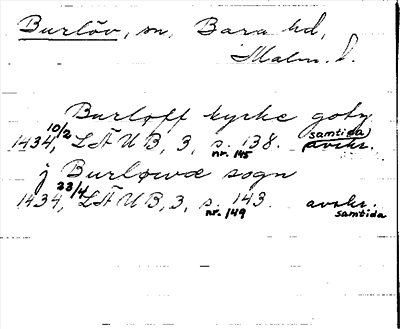 Burlöv, sn, Bara hd,
Malm. l.
Burloff kyrke goty
1434, 10/2 LÄUB, 3, s. 138. nr. 145 samtida avskr.
j Burløwæ sogn
1434, 23/4 LÄUB, 3, s. 143. nr. 149 avskr. samtida